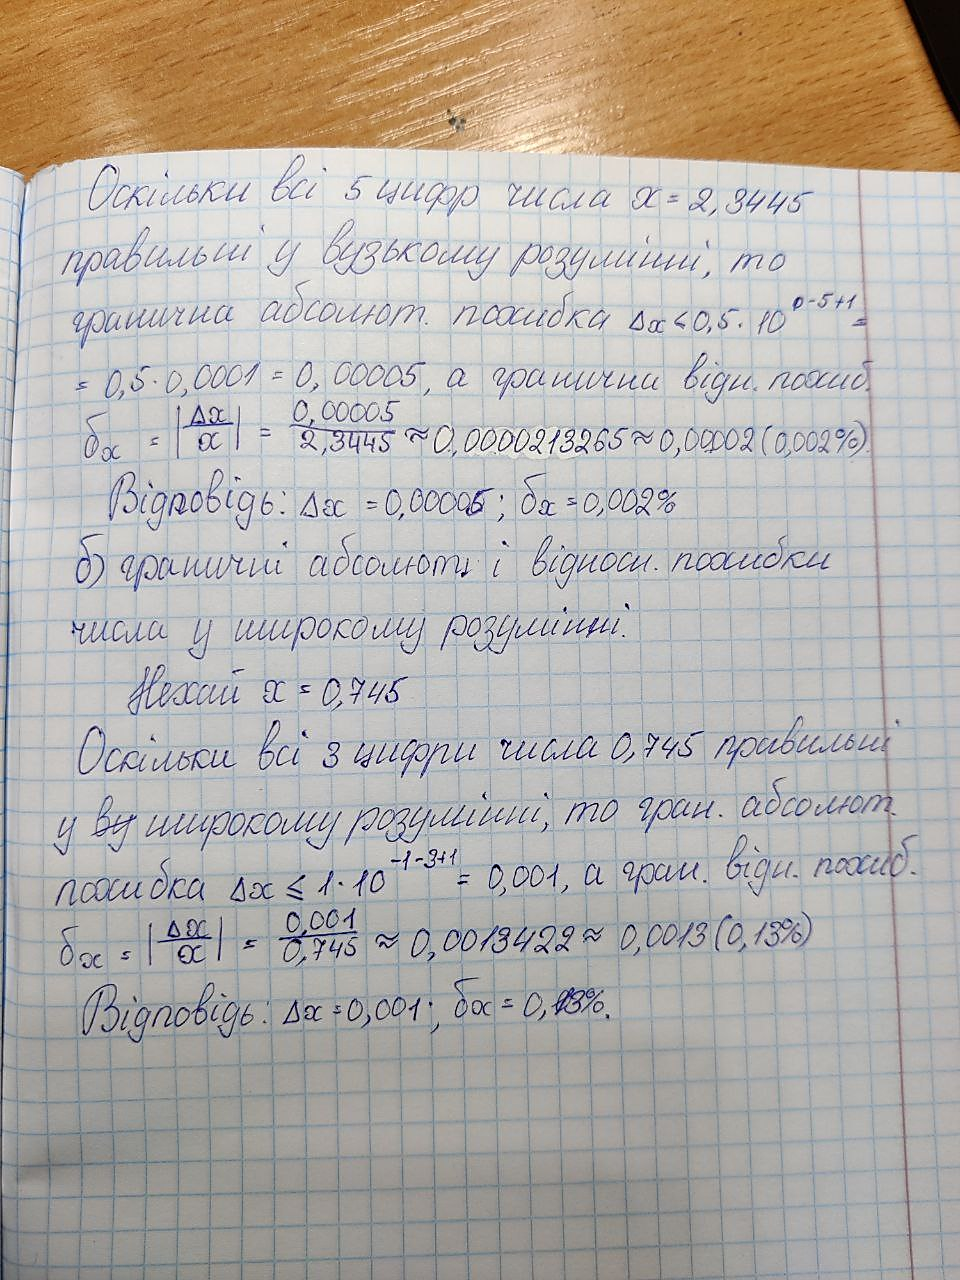 Оскільки всі 5 цифр числа x = 2,3445
правильні у вузькому розумінні, то
гранична абсолют. похибка Δx ≤ 0,5 · 10^(0-5+1) =
= 0,5 · 0,0001 = 0,00005, а гранична відн. похиб.
δx = |Δx/x| = 0,00005/2,3445 ≈ 0,0000213265 ≈ 0,00002 (0,002%)
Відповідь: Δx = 0,00005; δx = 0,002%
б) граничні абсолютн. і відносн. похибки
числа у широкому розумінні.
Нехай x = 0,745
Оскільки всі 3 цифри числа 0,745 правильні
у широкому розумінні, то гран. абсолют.
похибка Δx ≤ 1 · 10^(-1-3+1) = 0,001, а гран. відн. похиб.
δx = |Δx/x| = 0,001/0,745 ≈ 0,0013422 ≈ 0,0013 (0,13%)
Відповідь: Δx = 0,001; δx = 0,13%.